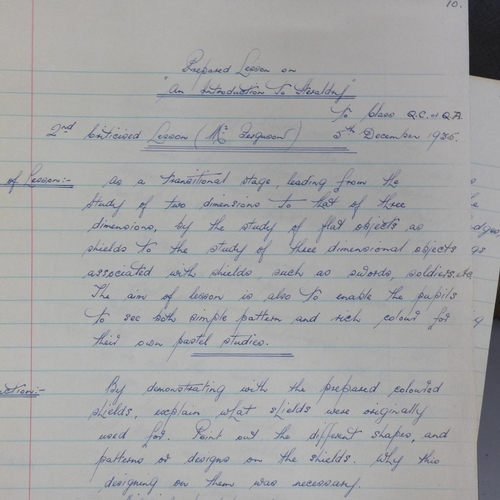 10.
Prepared Lesson on
"An Introduction To Heraldry"
To Class Q.C. or Q.A.
2nd Criticised Lesson (Mr Ferguson) 5th December 1935.
of Lesson:- As a transitional stage, leading from the
study of two dimensions to that of three
dimensions, by the study of flat objects as
shields to the study of three dimensional objects
associated with shields, such as swords, soldiers, etc.
The aim of lesson is also to enable the pupils
to see both simple pattern and rich colour for
their own pastel studies.
uction:- By demonstrating with the prepared coloured
shields, explain what shields were originally
used for. Point out the different shapes, and
patterns or designs on the shields. Why this
designing on them was necessary.